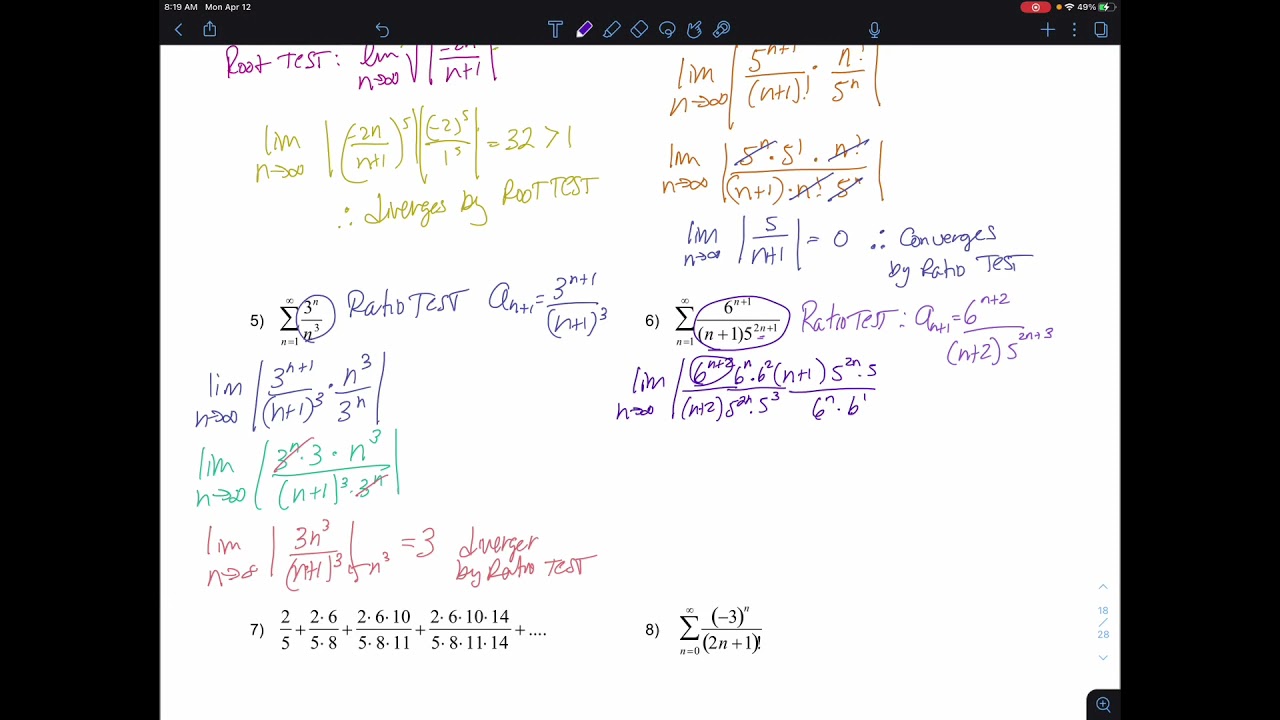 8:19 AM Mon Apr 12
49%
T
Root TEST: lim n→∞ √|-2n/n+1|
lim n→∞ |(-2n/n+1)^5| |(-2)^5/1^5| = 32 > 1
∴ diverges by ROOT TEST
lim n→∞ |5^(n+1)/(n+1)! · n!/5^n|
lim n→∞ |5^n · 5^1 · n!/(n+1) · n! 5^n|
lim n→∞ |5/n+1| = 0 ∴ Converges
by Ratio TEST
5) ∑_(n=1)^∞ 3^n/n^3 Ratio TEST a_(n+1) = 3^(n+1)/(n+1)^3
lim n→∞ |3^(n+1)/(n+1)^3 · n^3/3^n|
lim n→∞ |3^n · 3 · n^3/(n+1)^3 · 3^n|
lim n→∞ |3n^3/(n+1)^3| n^3 = 3 diverger
by Ratio TEST
6) ∑_(n=1)^∞ 6^(n+1)/(n+1)5^(2n+1) Ratio TEST: a_(n+1) = 6^(n+2)/(n+2) 5^(2n+3)
lim n→∞ |6^(n+2) 6^n · 6^2 (n+1) 5^(2n) · 5/(n+2) 5^(2n) · 5^3 6^n · 6^1
7) 2/5 + 2·6/5·8 + 2·6·10/5·8·11 + 2·6·10·14/5·8·11·14 + ....
8) ∑_(n=0)^∞ (−3)^n/(2n+1)!
18
/
28